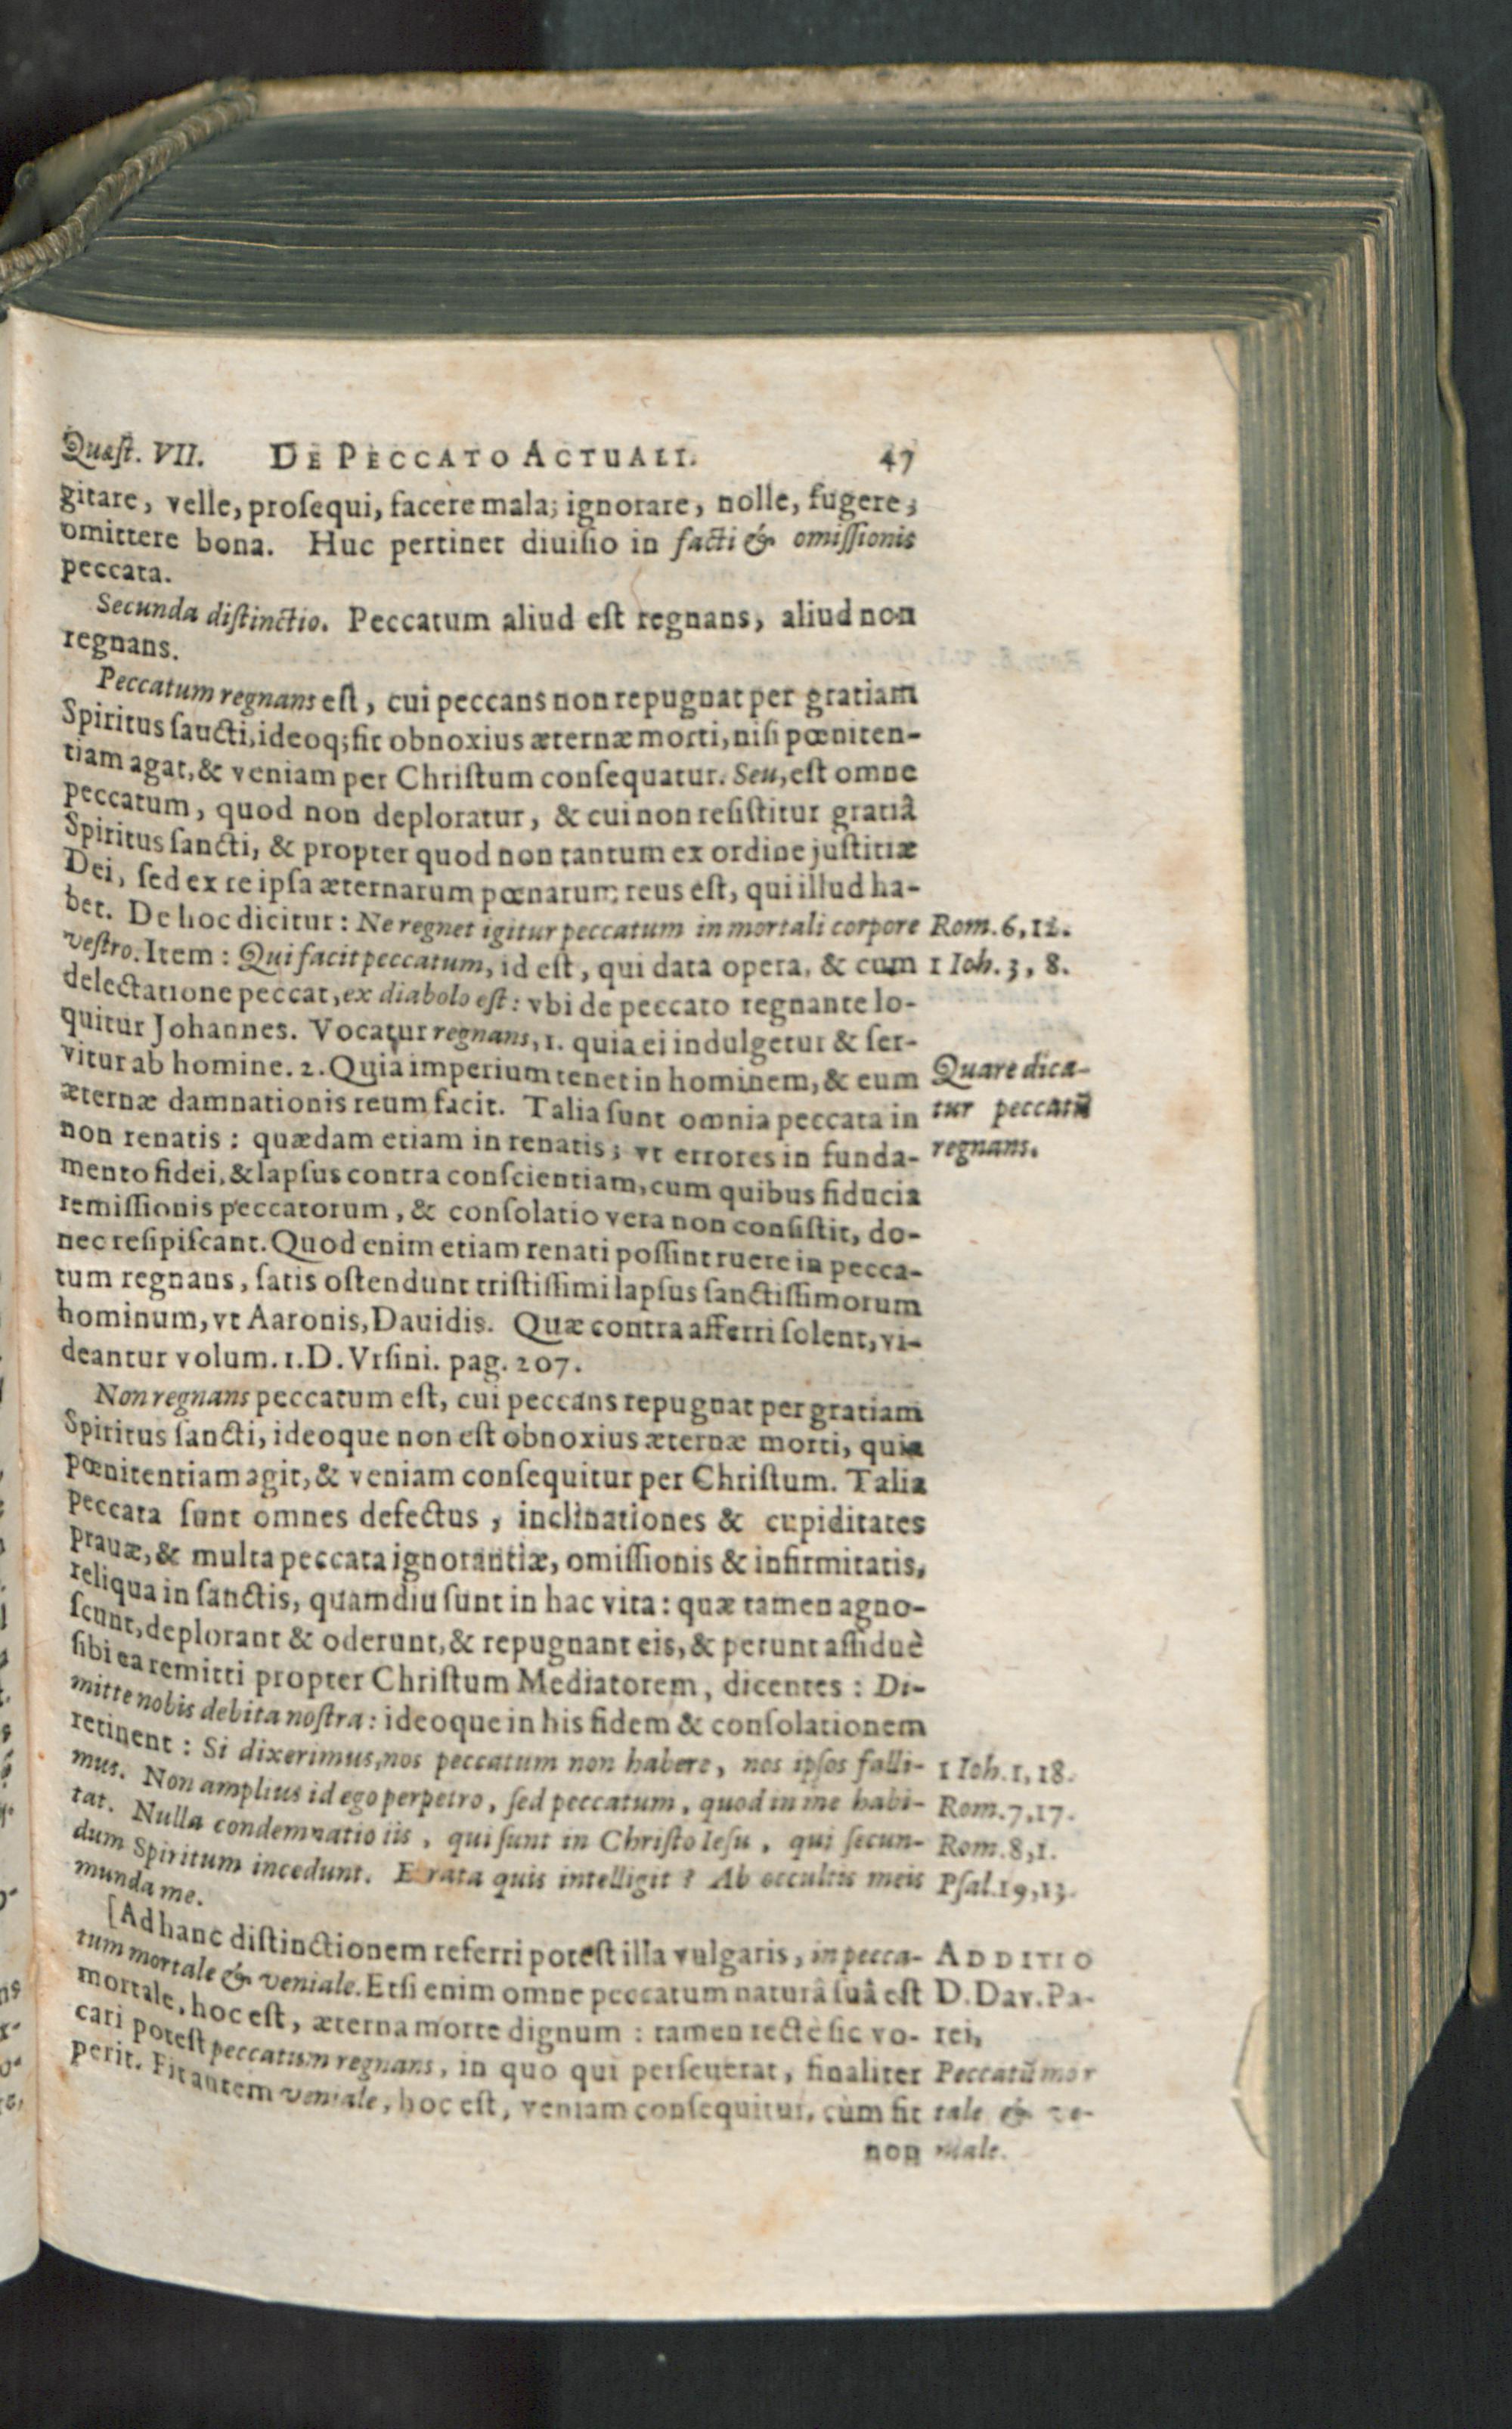 Quæst. VII. DE PECCATO ACTUALI. 47
gitare, velle, proſequi, facere mala; ignorare, nolle, fugere,
omittere bona. Huc pertinet diuiſio in facti & omiſſionis
peccata.
Secunda diſtinctio. Peccatum aliud eſt regnans, aliud non
regnans.
Peccatum regnans eſt, cui peccans non repugnat per gratiam
Spiritus ſaucti, ideoq; fit obnoxius æternæ morti, niſi pœniten-
tiam agat, & veniam per Chriſtum conſequatur. Seu, eſt omne
peccatum, quod non deploratur, & cui non reſiſtitur gratiâ
Spiritus ſancti, & propter quod non tantum ex ordine juſtitiæ
Dei, ſed ex re ipſa æternarum pœnarum reus eſt, qui illud ha-
bet. De hoc dicitur: Ne regnet igitur peccatum in mortali corpore Rom. 6, 12.
veſtro. Item: Qui facit peccatum, id eſt, qui data opera, & cum 1 Ioh. 3, 8.
delectatione peccat, ex diabolo eſt: vbi de peccato regnante lo-
quitur Johannes. Vocatur regnans, 1. quia ei indulgetur & ſer-
vitur ab homine. 2. Quia imperium tenet in hominem, & eum Quare dica-
æternæ damnationis reum facit. Talia ſunt omnia peccata in tur peccatũ
non renatis: quædam etiam in renatis; vt errores in funda- regnans.
mento fidei, & lapſus contra conſcientiam, cum quibus fiducia
remiſſionis peccatorum, & conſolatio vera non conſiſtit, do-
nec reſipiſcant. Quod enim etiam renati poſſint ruere in pecca-
tum regnans, ſatis oſtendunt triſtiſſimi lapſus ſanctiſſimorum
hominum, vt Aaronis, Dauidis. Quæ contra afferri ſolent, vi-
deantur volum. 1. D. Vrſini. pag. 207.
Non regnans peccatum eſt, cui peccans repugnat per gratiam
Spiritus ſancti, ideoque non eſt obnoxius æternæ morti, quia
pœnitentiam agit, & veniam conſequitur per Chriſtum. Talia
peccata ſunt omnes defectus, inclinationes & cupiditates
prauæ, & multa peccata ignorantiæ, omiſſionis & infirmitatis,
reliqua in ſanctis, quamdiu ſunt in hac vita: quæ tamen agno-
ſcunt, deplorant & oderunt, & repugnant eis, & petunt aſſiduè
ſibi ea remitti propter Chriſtum Mediatorem, dicentes: Di-
mitte nobis debita noſtra: ideoque in his fidem & conſolationem
retinent: Si dixerimus, nos peccatum non habere, nos ipſos falli- 1 Ioh. 1, 18.
mus. Non amplius id ego perpetro, ſed peccatum, quod in me habi- Rom. 7, 17.
tat. Nulla condemnatio iis, qui ſunt in Chriſto Ieſu, qui ſecun- Rom. 8, 1.
dum Spiritum incedunt. Errata quis intelligit? Ab occultis meis Pſal. 19, 13.
munda me.
[Ad hanc diſtinctionem referri poteſt illa vulgaris, in pecca- ADDITIO
tum mortale & veniale. Etſi enim omne peccatum naturâ ſuâ eſt D. Dav. Pa-
mortale, hoc eſt, æterna morte dignum: tamen rectè ſic vo- rei,
cari poteſt peccatum regnans, in quo qui perſeuerat, finaliter Peccatũ mor
perit. Fit autem veniale, hoc eſt, veniam conſequitur, cùm fit tale & ve-
non niale.